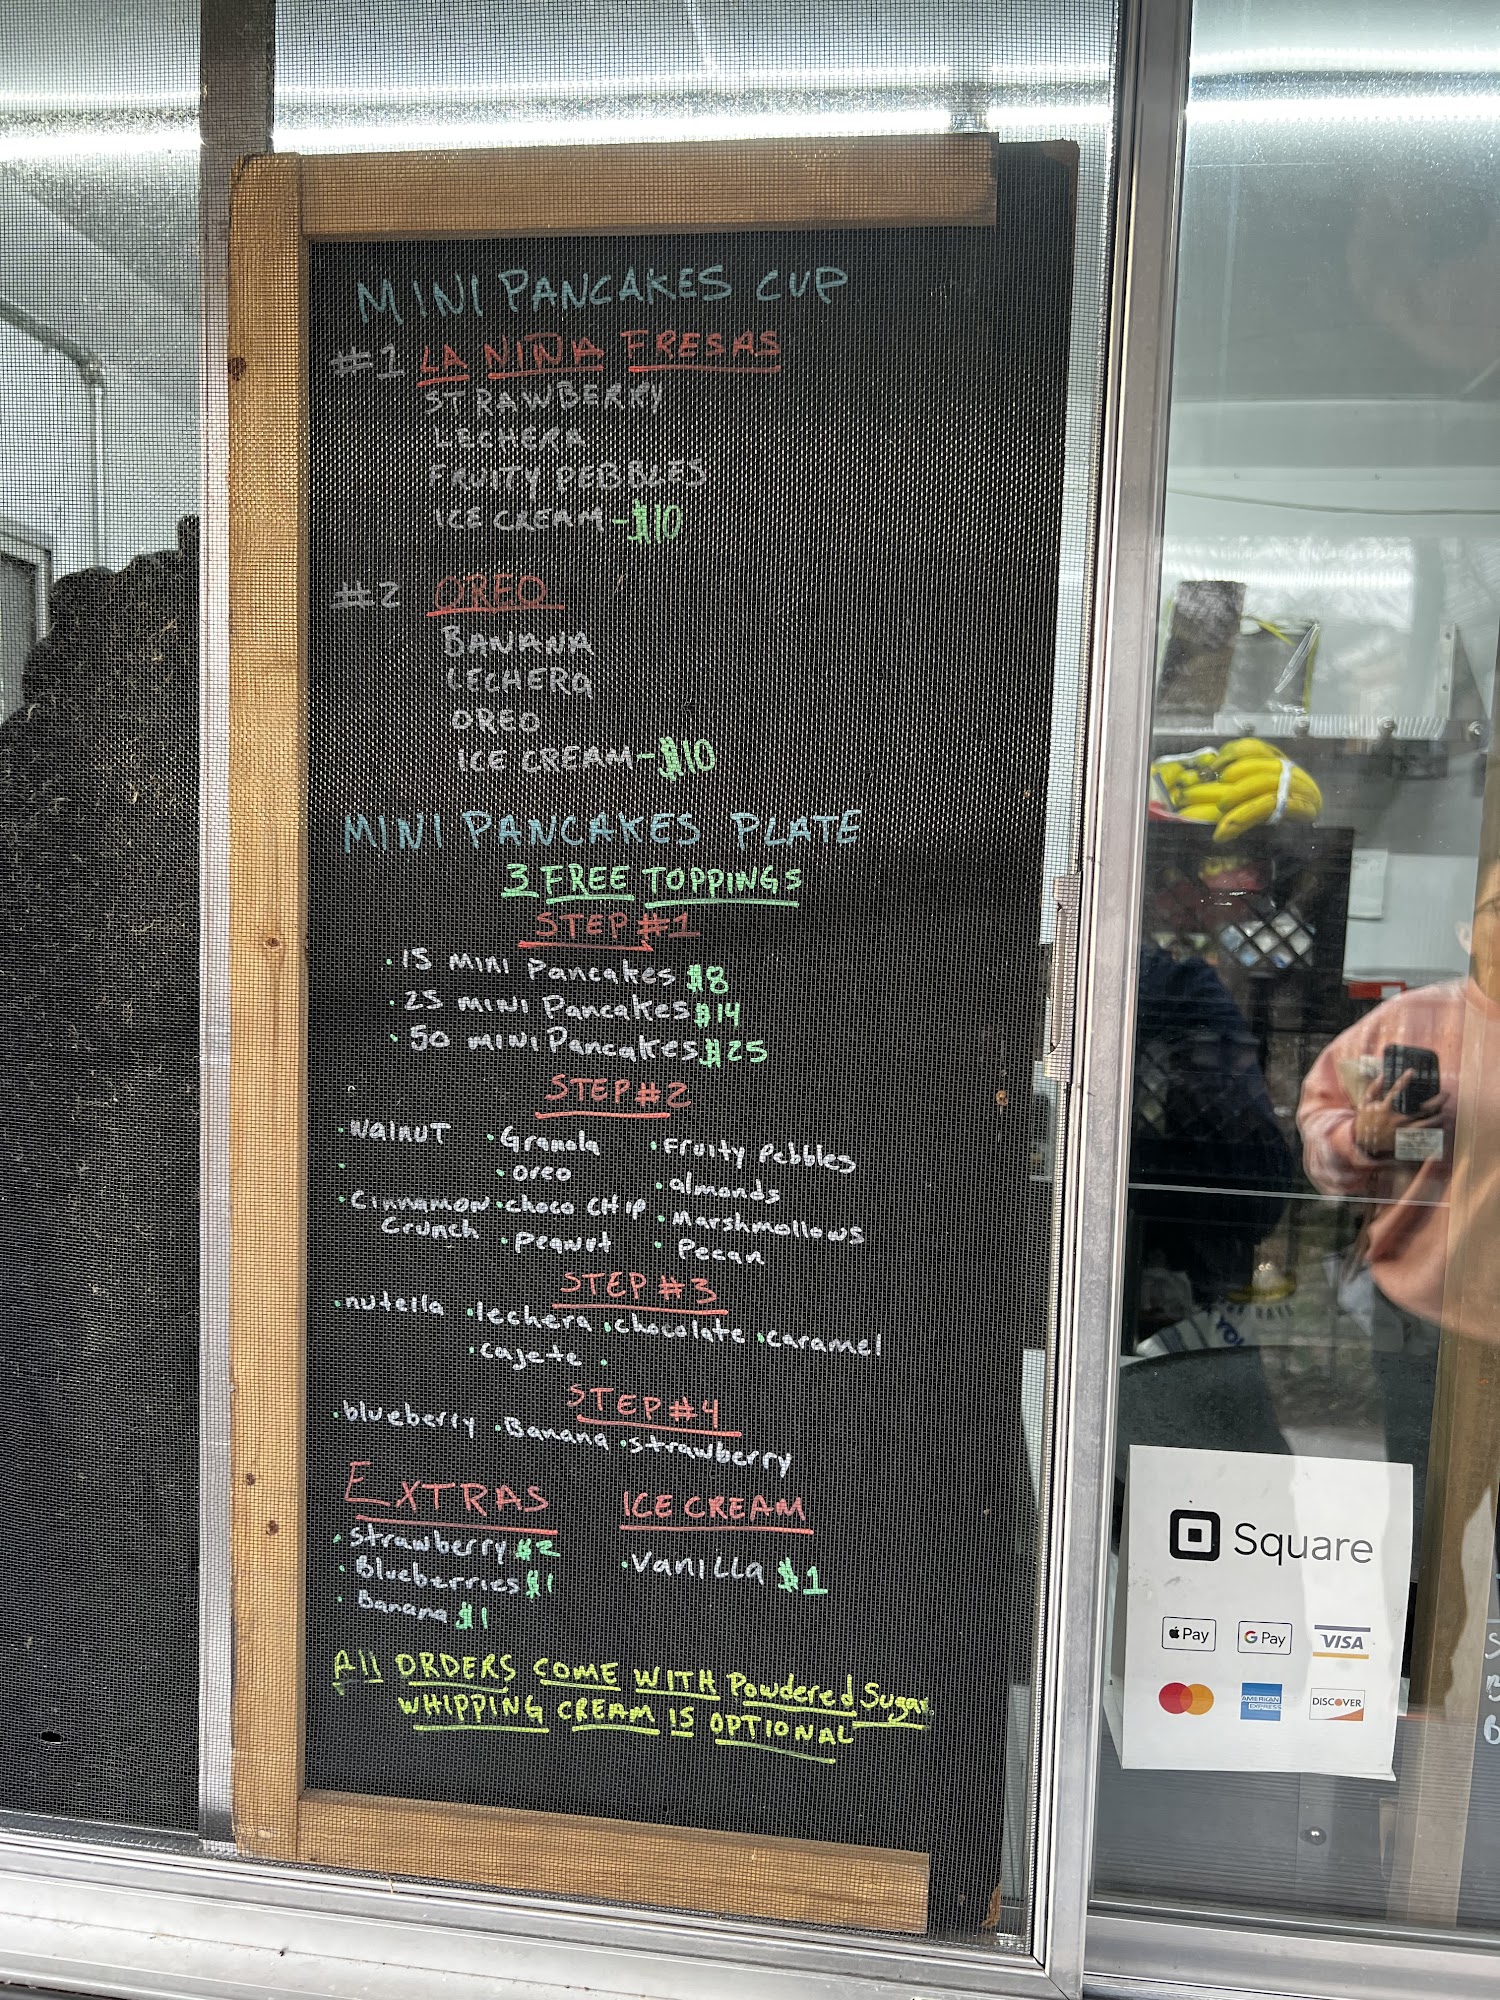 MINI PANCAKES CUP
#1 LA NIÑA FRESAS
STRAWBERRY
LECHERA
FRUITY PEBBLES
ICE CREAM - $10
#2 OREO
BANANA
LECHERA
OREO
ICE CREAM - $10
MINI PANCAKES PLATE
3 FREE TOPPINGS
STEP #1
· 15 MINI Pancakes $8
· 25 MINI Pancakes $14
· 50 MINI Pancakes $25
STEP #2
· Walnut · Granola · Fruity Pebbles
· oreo · almonds
· Cinnamon Crunch · choco CHIP · Marshmollows
· Peanut · Pecan
STEP #3
· nutella · lechera · chocolate · caramel
· cajete ·
STEP #4
· blueberry · Banana · strawberry
EXTRAS
· strawberry $2
· Blueberries $1
· Banana $1
ICE CREAM
· Vanilla $1
All ORDERS COME WITH Powdered Sugar
WHIPPING CREAM IS OPTIONAL
Square
Pay
G Pay
VISA
AMERICAN EXPRESS
DISCOVER